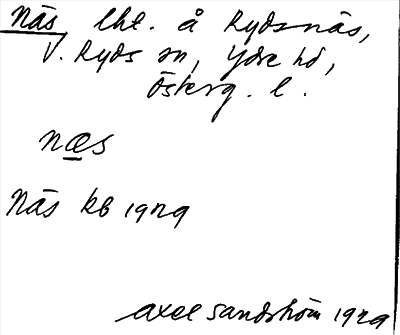 Näs, lht. å Rydsnäs,
V. Ryds sn, Ydre hd,
Österg. l.
næs
Näs kb 1929
Axel Sandström 1929